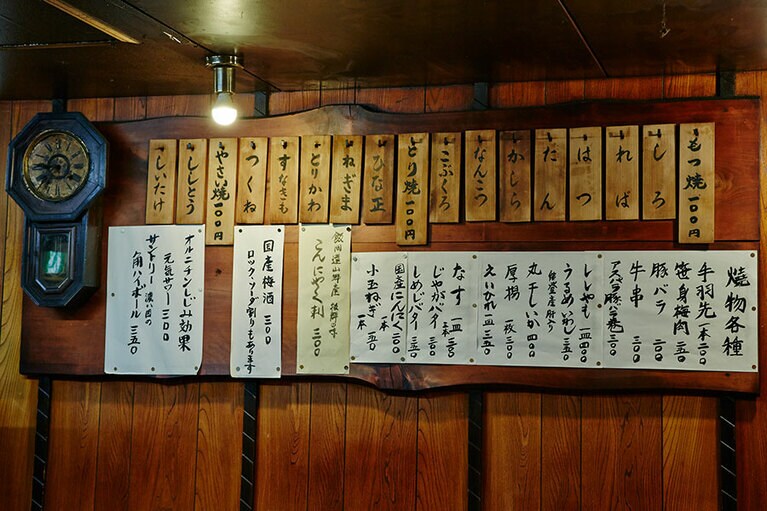 もつ焼 一〇〇円
しろ
ればー
はつ
たん
かしら
なんこつ
こぶくろ
とり焼 一〇〇円
ひな正
ねぎま
とりかわ
すなぎも
つくね
やさい焼 一〇〇円
ししとう
しいたけ
焼物各種
手羽先 一本 二〇〇
笹身梅肉 三五〇
豚バラ 二〇〇
牛串 三〇〇
アスパラ豚バラ巻 三〇〇
ししゃも 一皿 四〇〇
うるめいわし 三五〇
丸干しいか 四〇〇
厚揚 一枚 三〇〇
えいひれ 一皿 三五〇
なす 一皿 三〇〇
じゃがバター 二〇〇
しめじバター 三五〇
国産にんにく 一本 二〇〇
小玉ねぎ 一本 一五〇
こんにゃく刺 三〇〇
国産梅酒 三〇〇
ロック・ソーダ割りもあります
オルニチンしじみ効果
元気サワー 三〇〇
サントリー 濃い目の
角ハイボール 三五〇